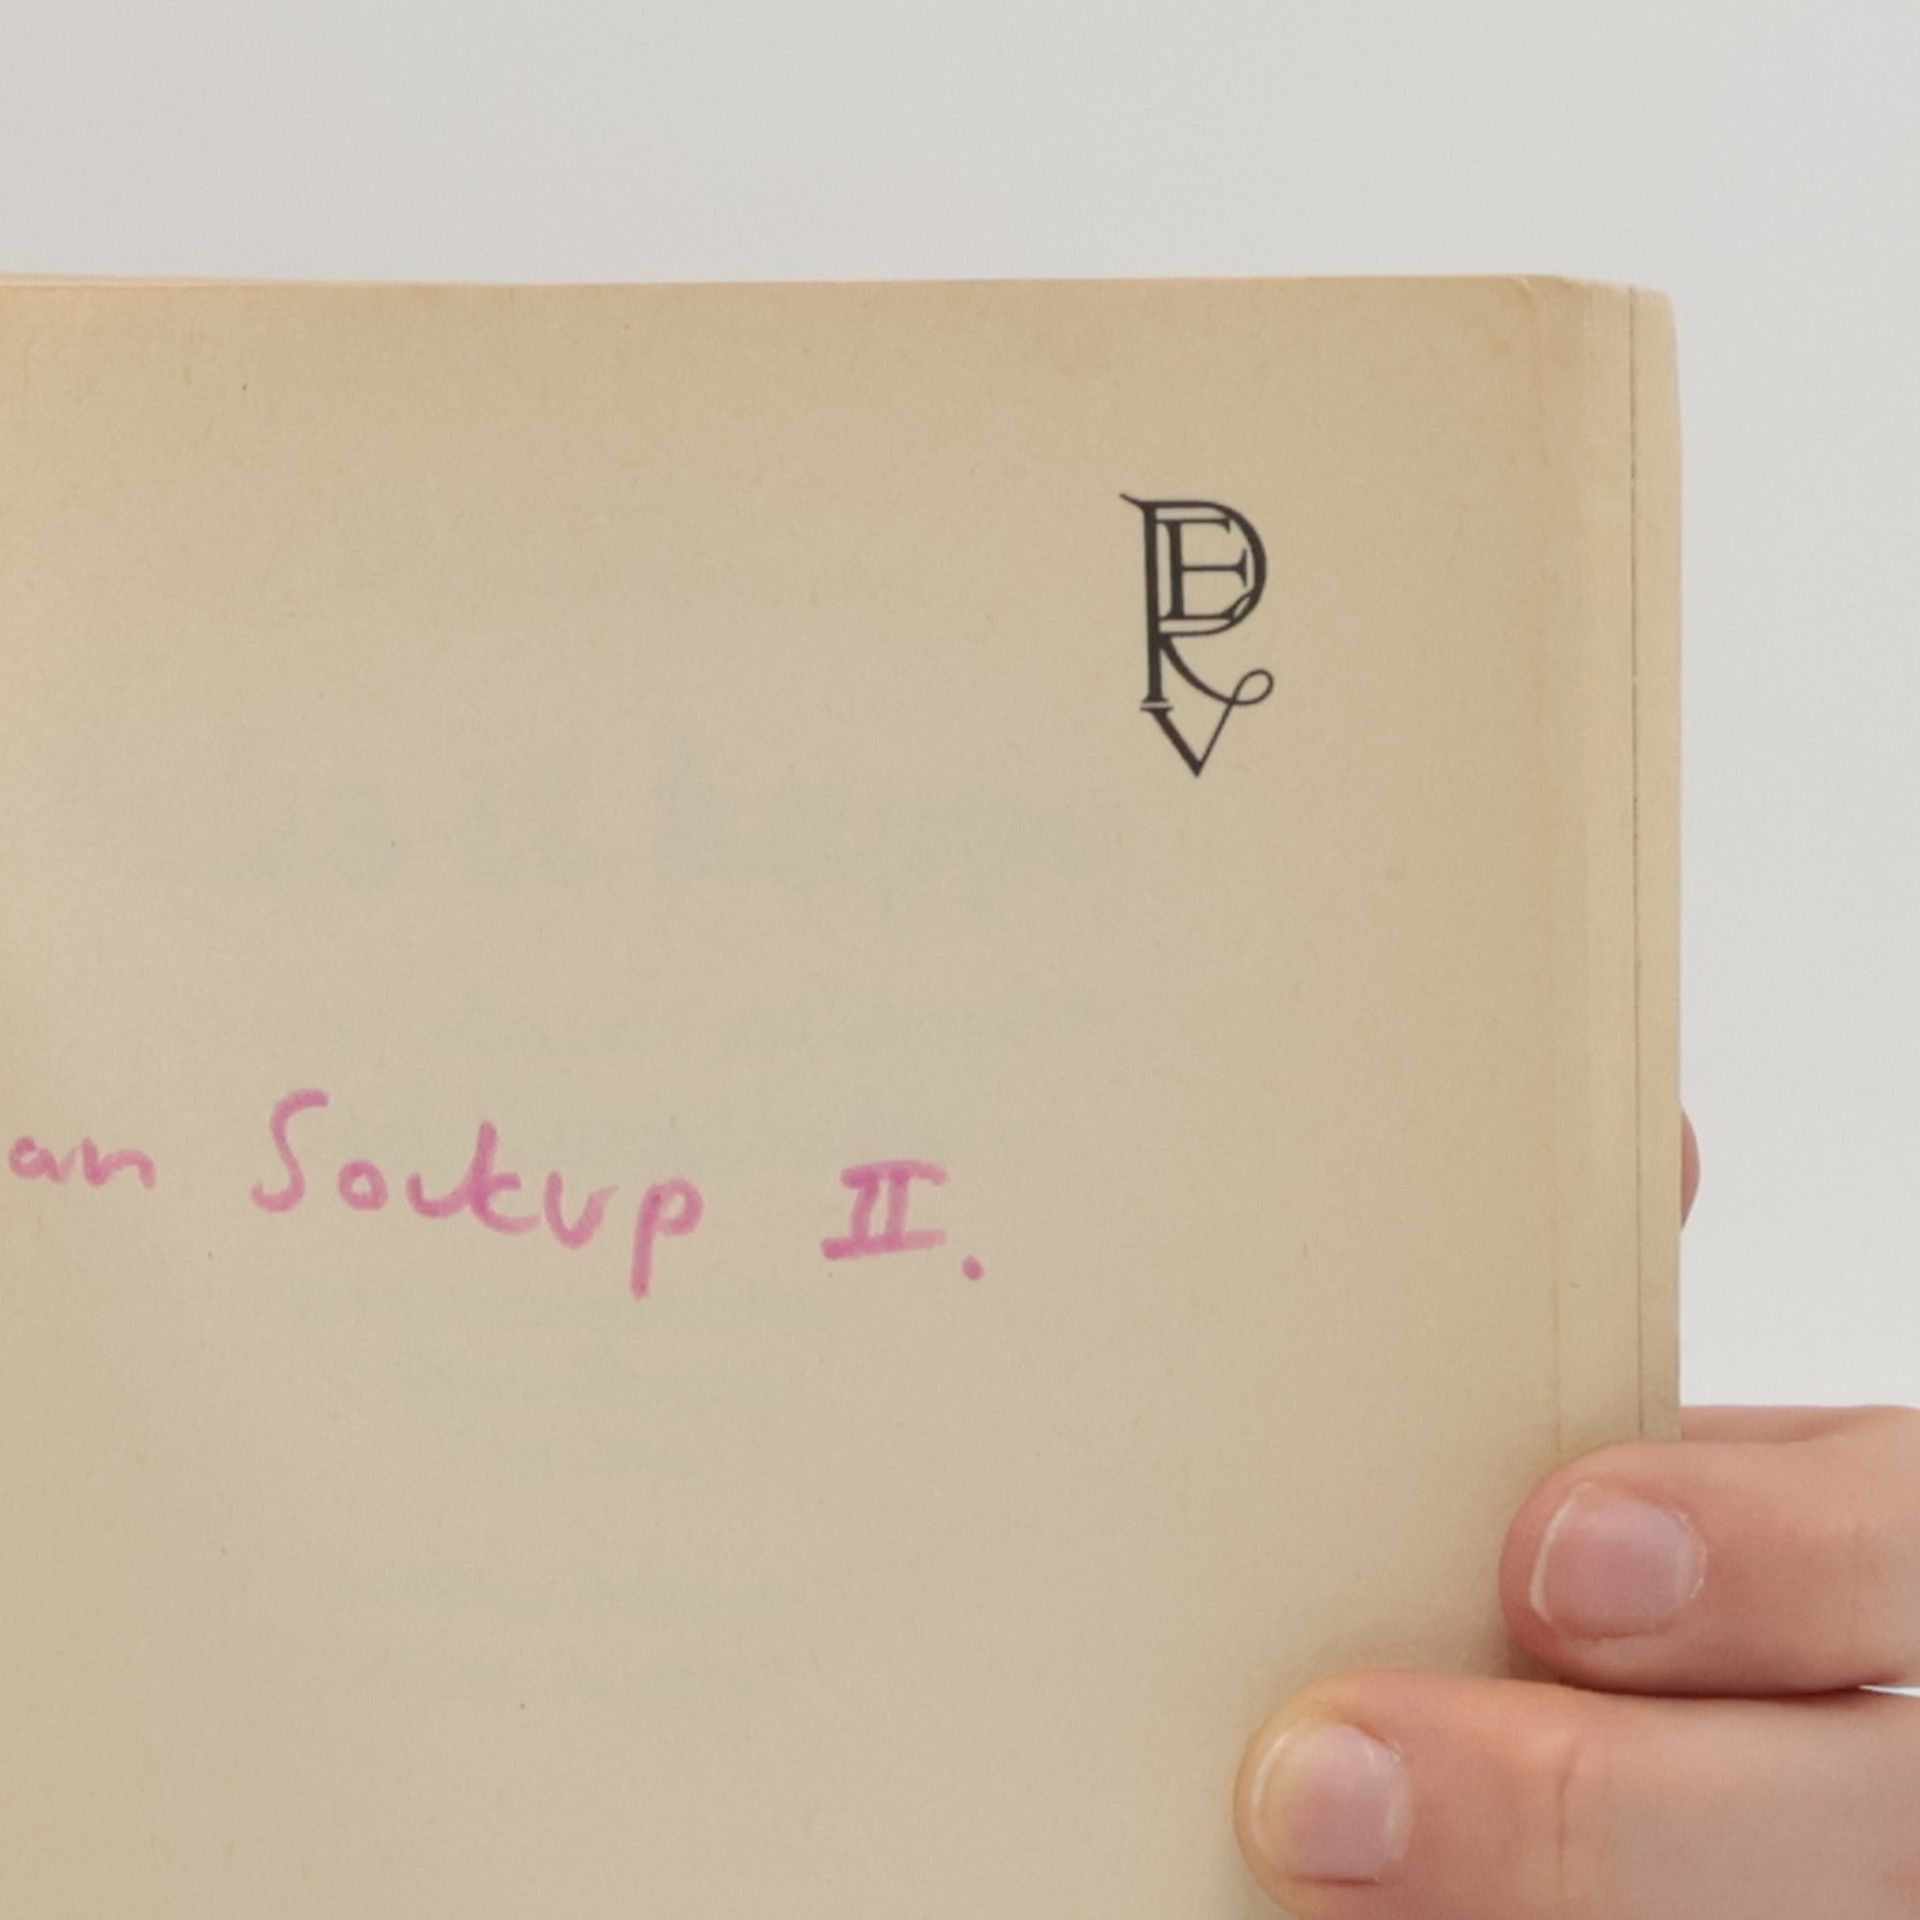 PERV
an Soukup II.